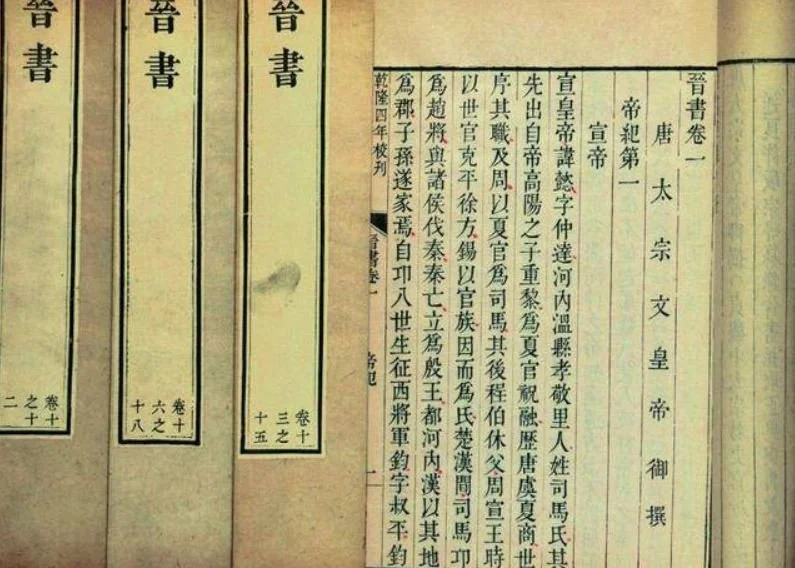 晉書卷一
唐太宗文皇帝御撰
帝紀第一
宣帝
宣皇帝諱懿字仲達河內溫縣孝敬里人姓司馬氏其
先出自帝高陽之子重黎爲夏官祝融歷唐虞夏商世
序其職及周以夏官爲司馬其後程伯休父周宣王時
以世官克平徐方錫以官族因而爲氏楚漢間司馬卬
爲趙將與諸侯伐秦秦亡立爲殷王都河內漢以其地
爲郡子孫遂家焉自卬八世生征西將軍鈞字叔平鈞
乾隆四年校刊
晉書卷一 帝紀 一
晉書
卷十
三之
十五
晉書
卷十
六之
十八
晉書
卷十
之十
二